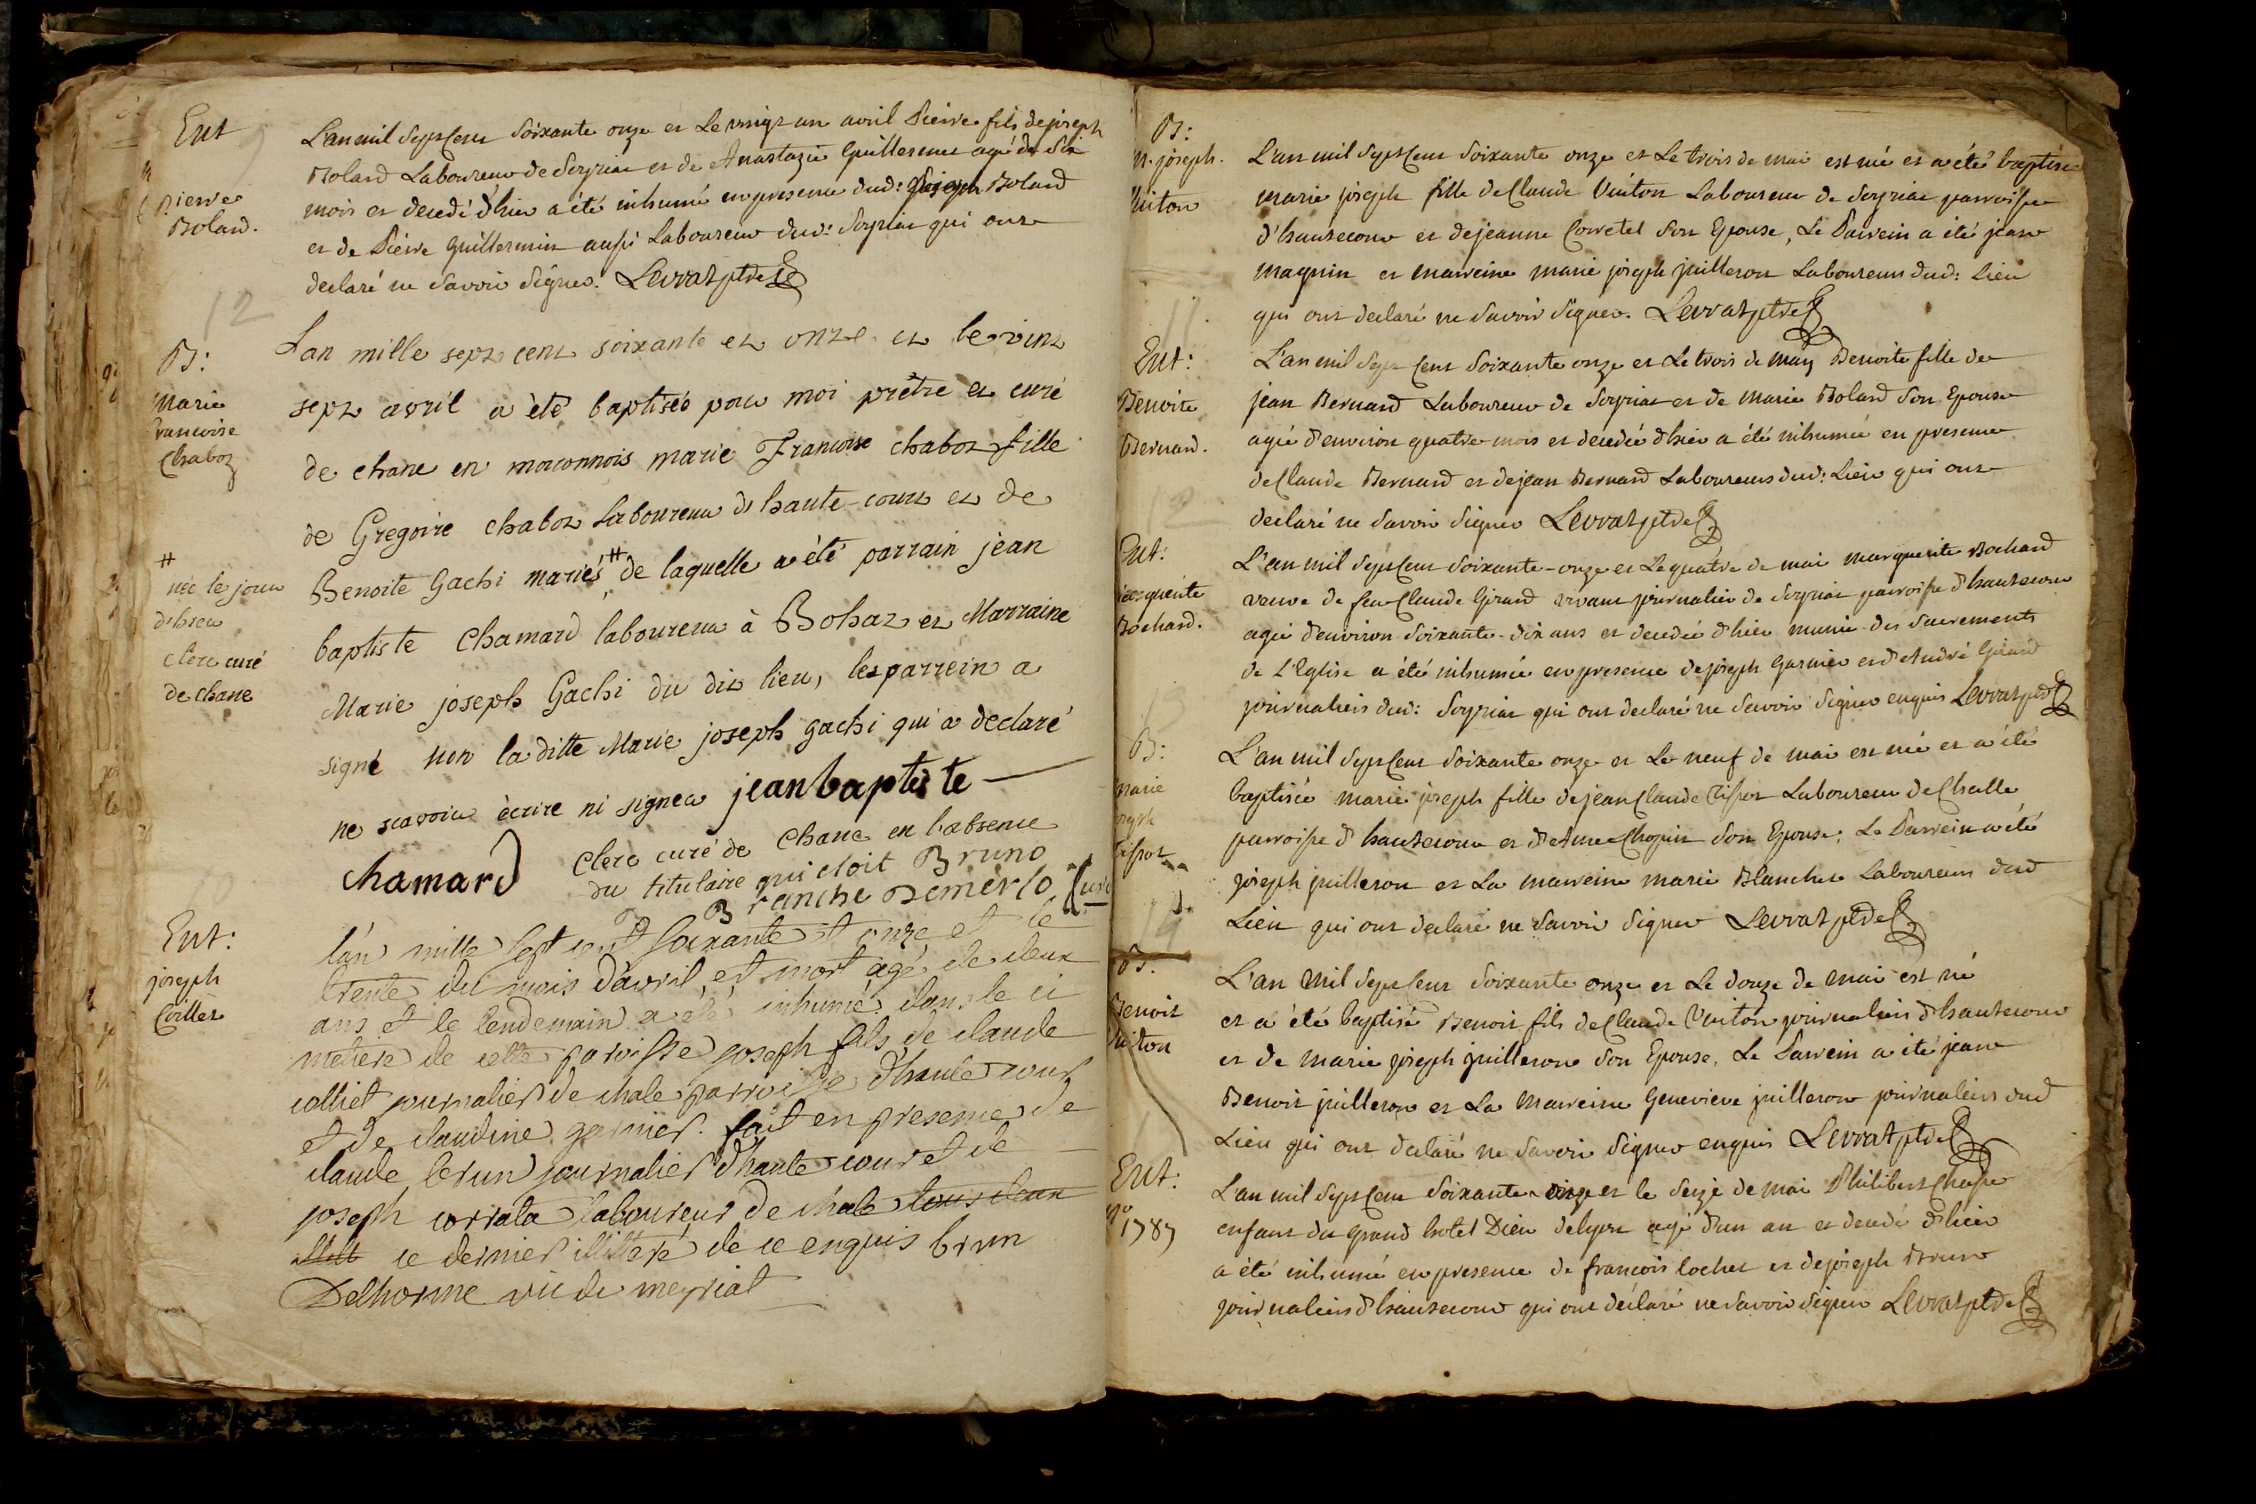 Ent
Pierre
Bolard.
L'an mil sept cent soixante onze et Le vingt un avril Pierre fils de joseph
Bolard Laboureur de Soyriat et de Anastazie Guillermet agé de six
mois et decedé d'hier a été inhumé en presence dud: joseph Bolard
et de Pierre Guillermin aussi Laboureur dud: Soyriat qui ont
declaré ne savoir signer. Levrat ptre
12
B:
marie
francoise
Chabot
L'an mille sept cent soixante et onze et le vint
sept avril a été baptisée pour moi prêtre et curé
de chane en maconnois marie Francoise chabot fille
de Gregoire chabot laboureur d'haute-cour et de
Benoite Gachi mariés # de laquelle a été parrain jean
baptiste Chamard laboureur à Bohaz et Marraine
Marie joseph Gachi du dit lieu, le parrein a
signé non la ditte Marie joseph gachi qui a declaré
ne scavoir ècrire ni signer jean baptiste
chamard
Clerc curé de Chane en l'absence
du titulaire qui etoit Bruno
#
née le jour
d'hier
Clerc curé
de chane
Ent:
joseph
Collet
l'an mille sept cent soixante et onze et le
trente du mois d'avril, est mort agé de deux
ans et le lendemain a été inhumé dans le ci
metiere de cette paroisse joseph fils de claude
colliet journalier de chale parroisse d'haute cour
et de claudine garnier. fait en presence de
claude brun journalier d'haute cour et de
joseph corrata laboureur de chale tous deux
ce dernier illitteré de ce enquis brun
Delhorme vic de meyriat
B:
M. joseph.
Vuiton
L'an mil sept Cent soixante onze et Le trois de mai est né et a été baptisée
marie joseph fille de Claude Vuiton Laboureur de Soyriat parroisse
d'hautecour et de jeanne Corretel son Epouse, Le Parrein a été jean
Maguin et marreine marie joseph juilleron Laboureurs dud: Lieu
qui ont declaré ne savoir signer. Levrat ptre
11
Ent:
Benoite
Bernard.
L'an mil sept Cent soixante onze et Le trois de may Benoite fille de
jean Bernard Laboureur de Soyriat et de Marie Bolard son Epouse
agée d'environ quatre mois et decedée d'hier a été inhumée en presence
de Claude Bernard et de jean Bernard Laboureurs dud: Lieu qui ont
declaré ne savoir signer Levrat ptre
12
Ent:
marguerite
Bochard.
L'an mil sept Cent soixante-onze et Le quatre de mai marguerite Bochard
veuve de feu Claude Girard vivant journalier de Soyriat parroisse d'hautecour
agée d'environ soixante-dix ans et decedée d'hier munie des sacrements
de L'Eglise a été inhumée en presence de joseph Garnier et d'André Girard
journaliers dud: Soyriat qui ont declaré ne savoir signer enquis Levrat ptre
13
B:
marie
joseph
Tissot
L'an mil sept Cent soixante onze et Le neuf de mai est née et a été
baptisée marie joseph fille de jean Claude Tissot Laboureur de Challe
parroisse d'hautecour et d'Anne Chopin son Epouse. Le Parrein a été
joseph juilleron et La marreine marie Blanchet Laboureurs dud
Lieu qui ont declaré ne savoir signer Levrat ptre
14
B.
Benoit
Vuiton
L'an mil sept Cent soixante onze et Le douze de mai est né
et a été baptisé Benoit fils de Claude Vuiton journalier d'hautecour
et de marie joseph juilleron son Epouse. Le Parrein a été jean
Benoit juilleron et La marreine Genevieve juilleron journaliers dud
Lieu qui ont declaré ne savoir signer enquis Levrat ptre
Ent:
No
1787
L'an mil sept Cent soixante onze et le seize de mai Philibert
enfant du grand hotel Dieu de Lyon agé d'un an et decedé d'hier
a été inhumé en presence de francois lochet et de joseph Brun
journaliers d'hautecour qui ont déclaré ne savoir signer Levrat ptre